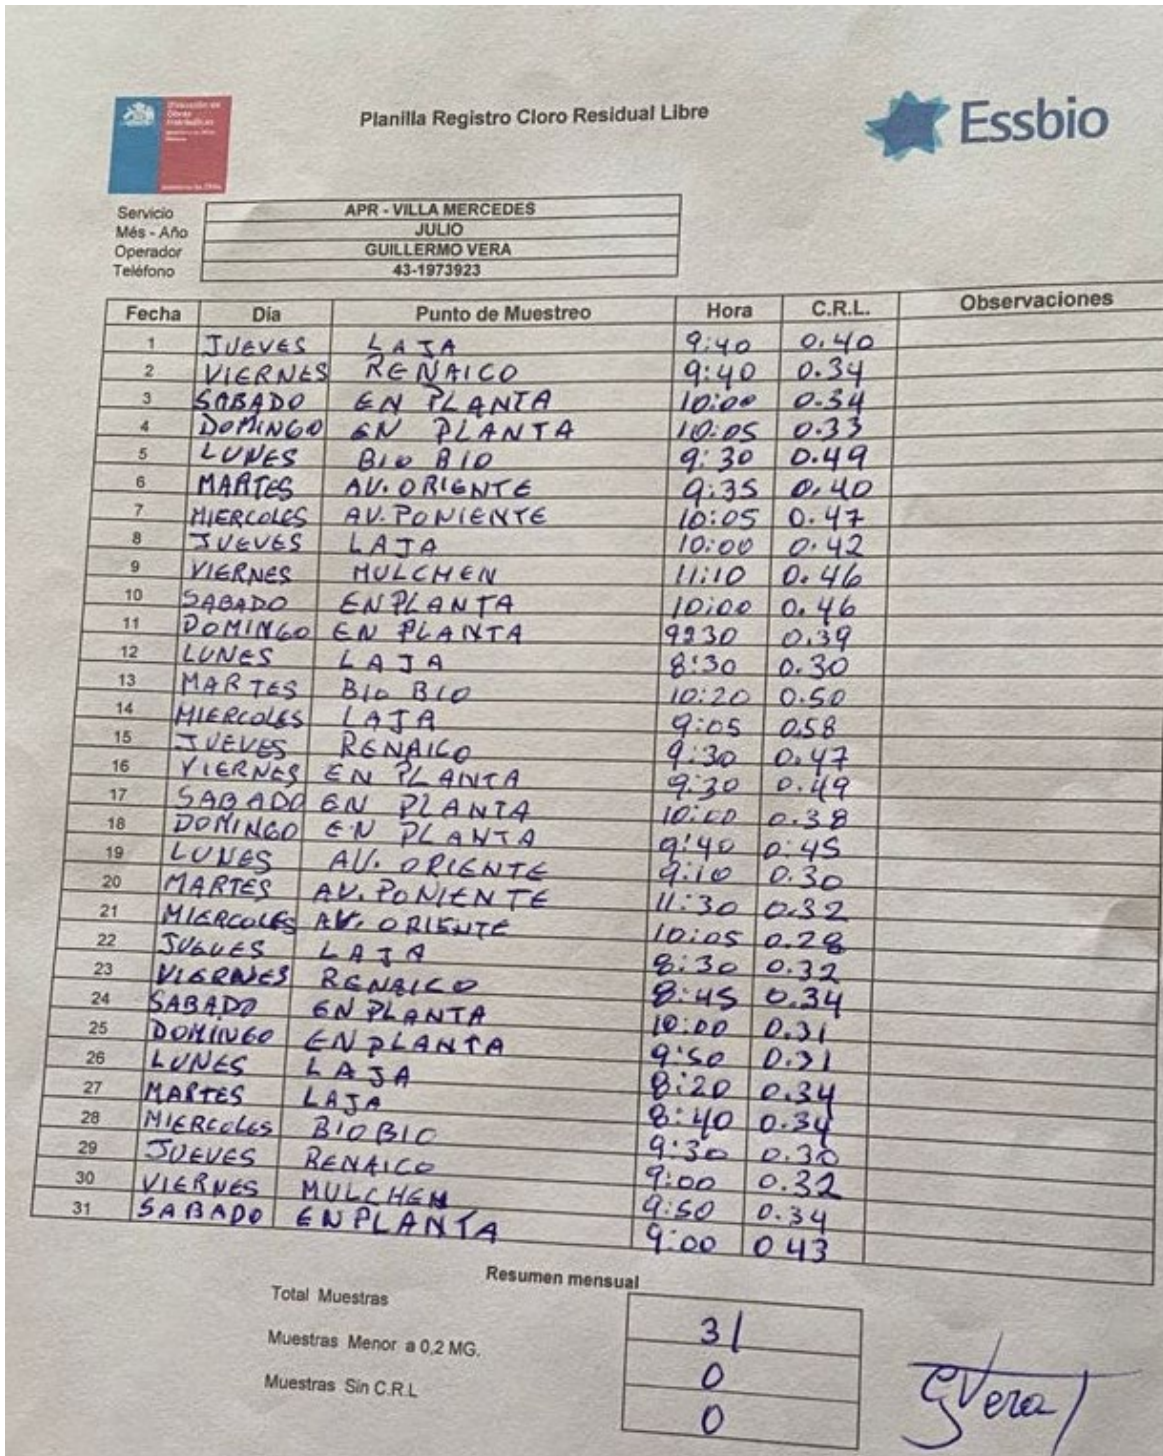 Dirección de
Obras
Hidráulicas
Gobierno de Chile
Planilla Registro Cloro Residual Libre
Essbio
Servicio APR - VILLA MERCEDES
Més - Año JULIO
Operador GUILLERMO VERA
Teléfono 43-1973923
Fecha Día Punto de Muestreo Hora C.R.L. Observaciones
1 JUEVES LAJA 9:40 0.40
2 VIERNES RENAICO 9:40 0.34
3 SABADO EN PLANTA 10:00 0.34
4 DOMINGO EN PLANTA 10:05 0.33
5 LUNES BIO BIO 9:30 0.49
6 MARTES AV. ORIENTE 9:35 0.40
7 MIERCOLES AV. PONIENTE 10:05 0.47
8 JUEVES LAJA 10:00 0.42
9 VIERNES MULCHEN 11:10 0.46
10 SABADO EN PLANTA 10:00 0.46
11 DOMINGO EN PLANTA 9:30 0.39
12 LUNES LAJA 8:30 0.30
13 MARTES BIO BIO 10:20 0.50
14 MIERCOLES LAJA 9:05 0.58
15 JUEVES RENAICO 9:30 0.47
16 VIERNES EN PLANTA 9:30 0.49
17 SABADO EN PLANTA 10:00 0.38
18 DOMINGO EN PLANTA 9:40 0.45
19 LUNES AV. ORIENTE 9:10 0.30
20 MARTES AV. PONIENTE 11:30 0.32
21 MIERCOLES AV. ORIENTE 10:05 0.28
22 JUEVES LAJA 8:30 0.32
23 VIERNES RENAICO 8:45 0.34
24 SABADO EN PLANTA 10:00 0.31
25 DOMINGO EN PLANTA 9:50 0.31
26 LUNES LAJA 8:20 0.34
27 MARTES LAJA 8:40 0.34
28 MIERCOLES BIO BIO 9:30 0.30
29 JUEVES RENAICO 9:00 0.32
30 VIERNES MULCHEN 9:50 0.34
31 SABADO EN PLANTA 9:00 0 43
Resumen mensual
Total Muestras 31
Muestras Menor a 0,2 MG. 0
Muestras Sin C.R.L 0
GVera